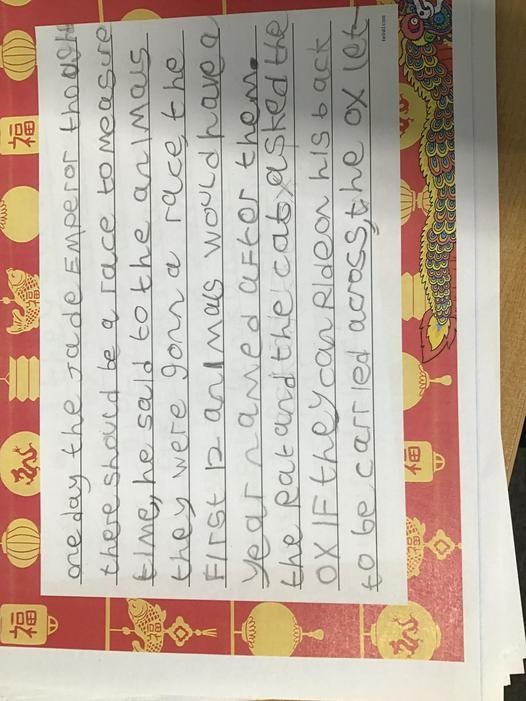 one day the Jade Emperor thoght
there should be a race to measure
time, he said to the animals
they were gonna race, the
First 12 animals would have a
year named after them.
the Rat and the cat asked the
ox IF they can Ride on his back
to be carried across, the ox let
福
福
福
福
twinkl.com